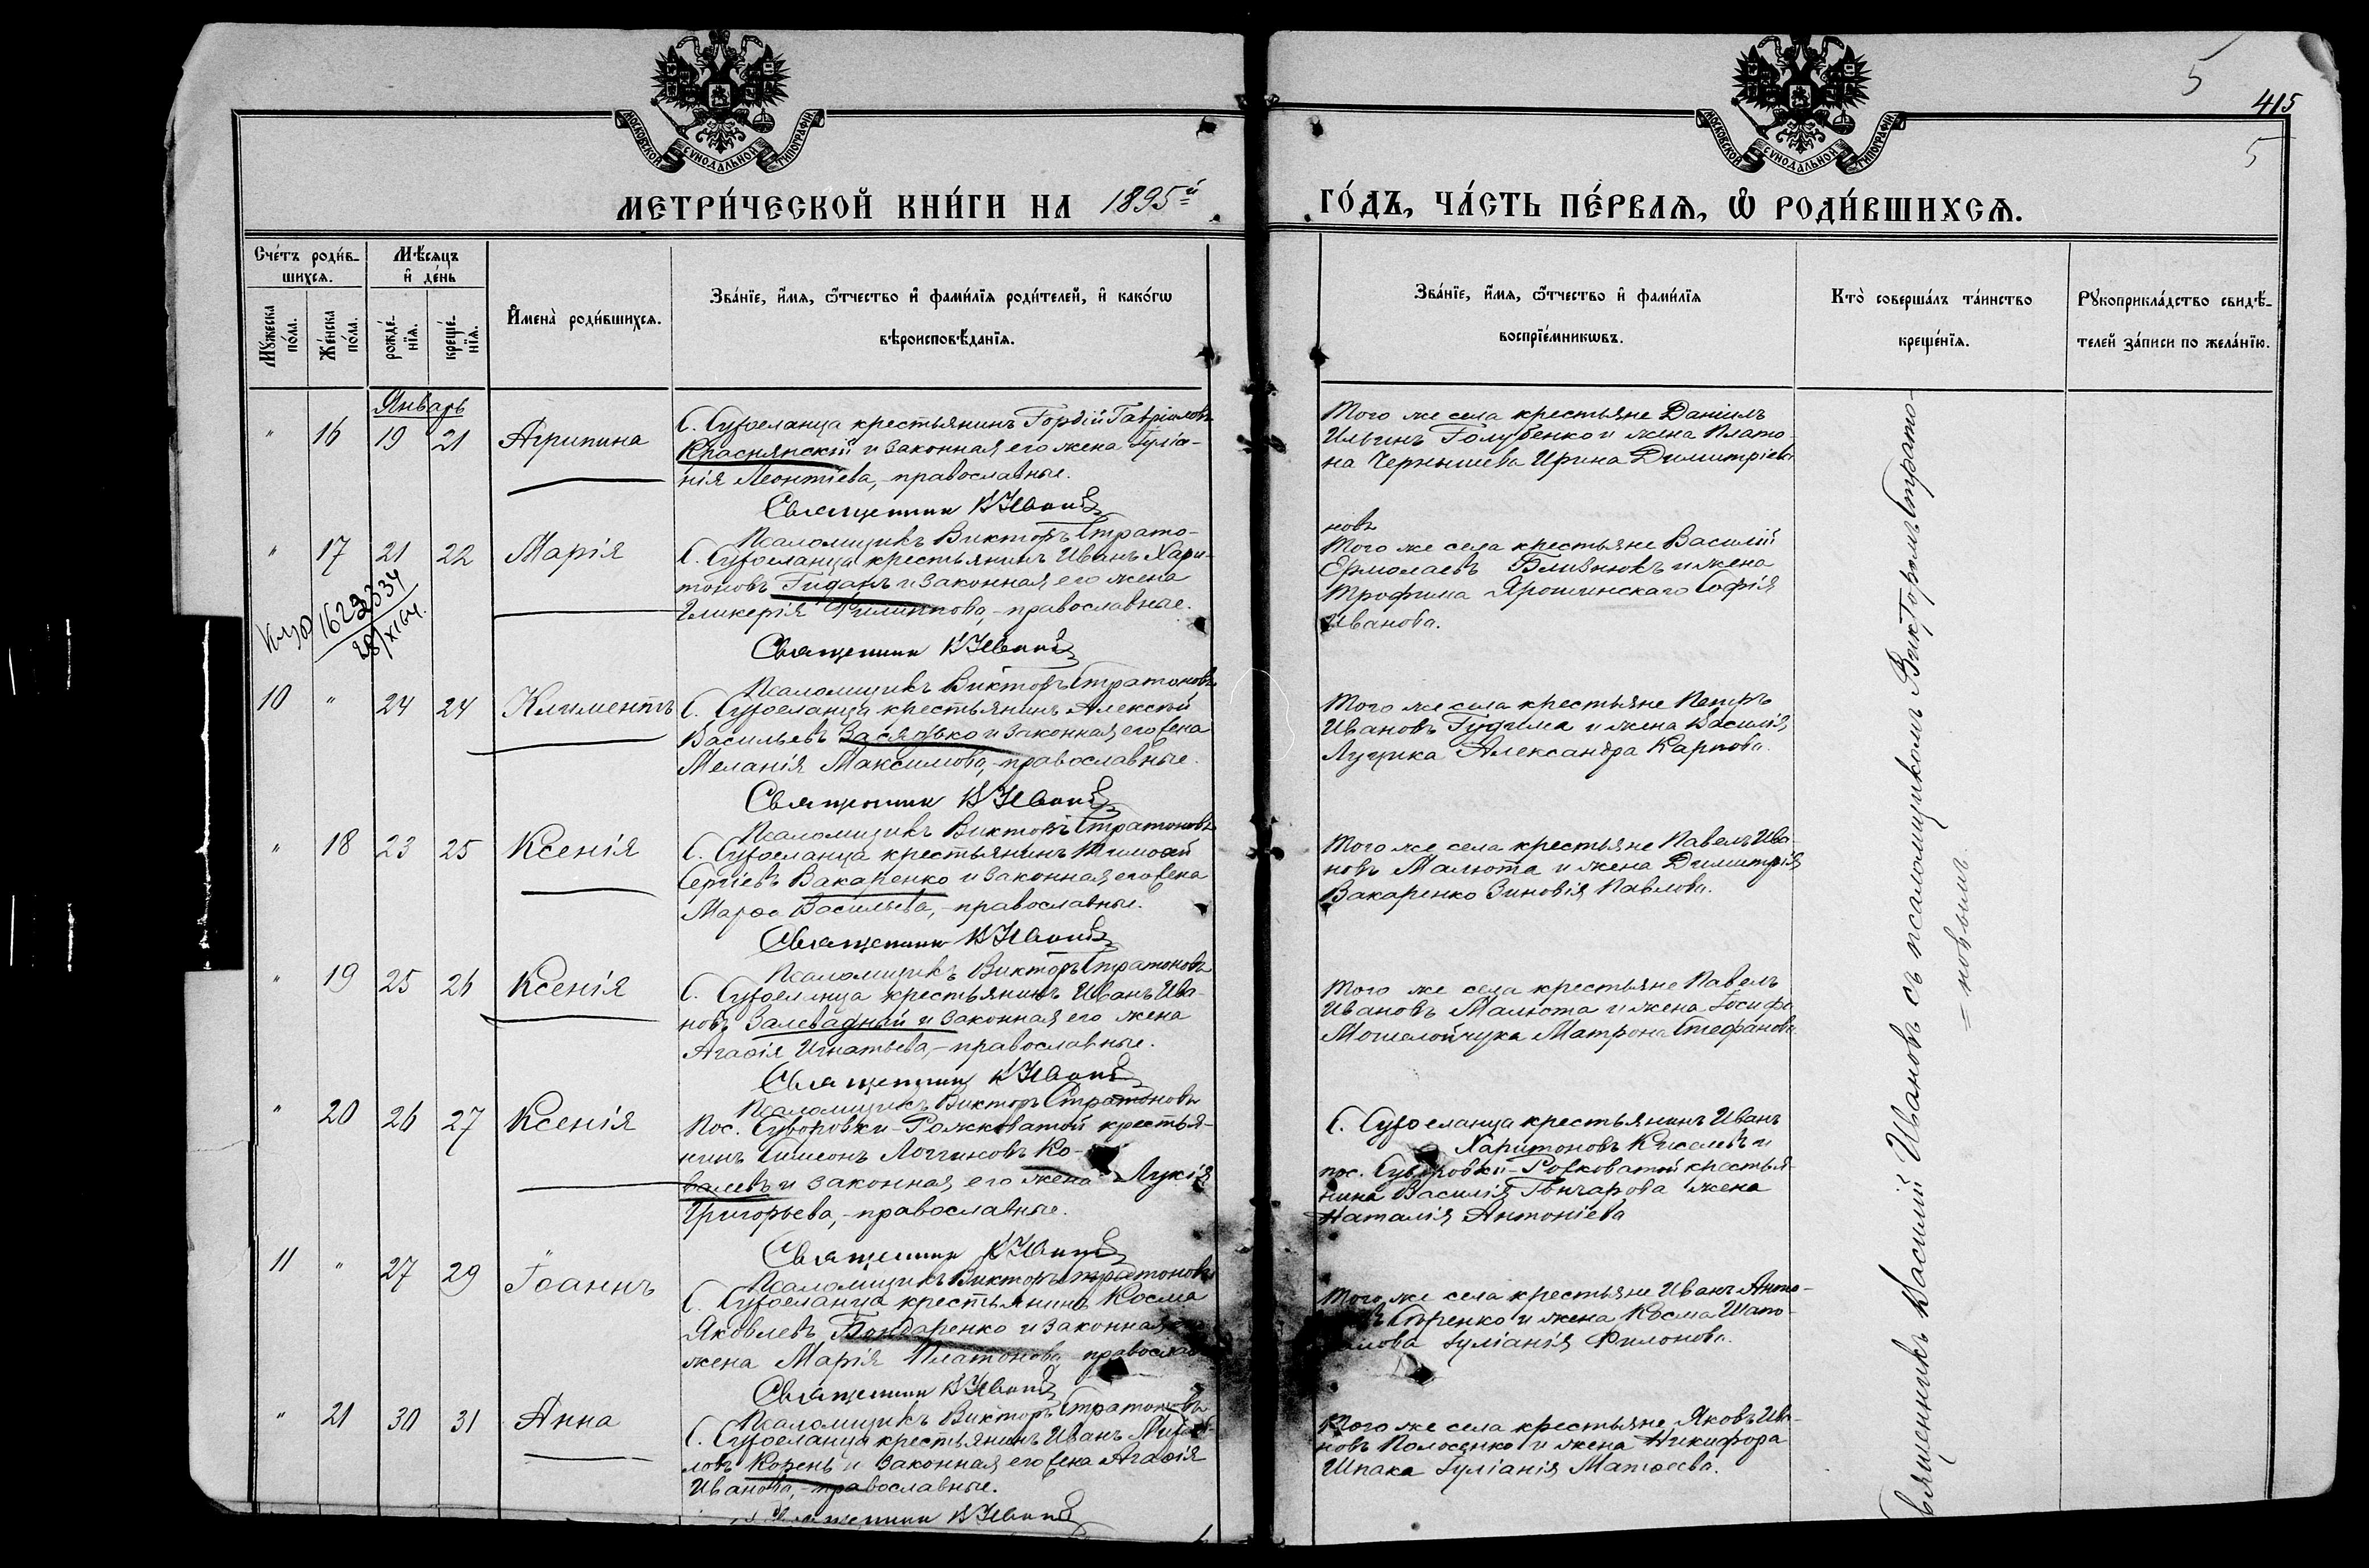 5
415
5
МОСКОВСКОЙ СѴНОДАЛЬНОЙ ТИПОГРАФІИ
МОСКОВСКОЙ СѴНОДАЛЬНОЙ ТИПОГРАФІИ
МЕТРИ́ЧЕСКОЙ КНИ́ГИ НА 1895й
ГО́ДЪ, ЧА́СТЬ ПЕ́РВАѦ, Ѡ РОДИ́ВШИХСѦ.
Сче́тъ роди́в-
шихсѧ.
Мѣ́сѧцъ
и҆ де́нь
Мꙋ́жеска по́ла.
Же́нска по́ла.
рожде́-
нїѧ.
креще́-
нїѧ.
И҆мена̀ роди́вшихсѧ.
Зва́нїе, и҆́мѧ, ѻ҆́тчество и҆ фами́лїѧ роди́телей, и҆ како́гѡ
вѣроисповѣ́данїѧ.
Зва́нїе, и҆́мѧ, ѻ҆́тчество и҆ фами́лїѧ
воспрїе́мникѡвъ.
Кто̀ соверша́лъ та́инство
креще́нїѧ.
Рꙋкоприкла́дство свидѣ́-
телей за́писи по жела́нїю.
Январь
" 16 19 21 Агрипина
С. Сухоеланца крестьянинъ Гордій Гавріиловъ
Краснянскій и законная его жена Іуліа-
нія Леонтіева, - православные.
Священник В Иванов
Псаломщикъ Викторъ Страто-
новъ
Того же села крестьяне Даніилъ
Ильинъ Голубенко и жена Плато-
на Чернышева Ирина Димитріева
" 17 21 22 Марія
С. Сухоеланца крестьянинъ Иванъ Хари-
тоновъ Гидакъ и законная его жена
Гликерія Филиппова, - православные.
Священник В Иванов
Псаломщикъ Викторъ Стратоновъ
Того же села крестьяне Василій
Ермолаевъ Близнюкъ и жена
Трофима Ярошинскаго Софія
Иванова.
10 " 24 24 Климентъ
С. Сухоеланца крестьянинъ Алексѣй
Васильевъ Засядько и законная его жена
Меланія Максимова, - православные.
Священник В Иванов
Псаломщикъ Викторъ Стратоновъ
Того же села крестьяне Петръ
Ивановъ Гудима и жена Василія
Луцика Александра Карпова.
" 18 23 25 Ксенія
С. Сухоеланца крестьянинъ Тимоѳей
Сергіевъ Вакаренко и законная его жена
Марѳа Васильева, - православные.
Священник В Иванов
Псаломщикъ Викторъ Стратоновъ
Того же села крестьяне Павелъ Ива-
новъ Малюта и жена Димитрія
Вакаренко Зиновія Павлова.
" 19 25 26 Ксенія
С. Сухоеланца крестьянинъ Иванъ Ива-
новъ Залевадный и законная его жена
Агаѳія Игнатьева, - православные.
Священник В Иванов
Псаломщикъ Викторъ Стратоновъ
Того же села крестьяне Павелъ
Ивановъ Малюта и жена Іосифа
Матрона Стефанова
" 20 26 27 Ксенія
Пос. Суворовки-Рожковатой крестья-
нинъ Симеонъ Логгиновъ Ко-
валевъ и законная его жена Лукія
Григорьева, - православные.
Священник В Иванов
Псаломщикъ Викторъ Стратоновъ
С. Сухоеланца крестьянинъ Иванъ
Харитоновъ Киселевъ и
пос. Суворовки-Рожковатой крестья-
нина Василія Гончарова жена
Наталія Антоніева
11 " 27 29 Іоаннъ
С. Сухоеланца крестьянинъ Косма
Яковлевъ Бондаренко и законная
жена Марія Платонова, православ
Священник В Иванов
Псаломщикъ Викторъ Стратоновъ
Того же села крестьяне Иванъ Анто-
и жена Косма Шапо-
Іуліанія Филонова.
" 21 30 31 Анна
С. Сухоеланца крестьянинъ Иванъ Михаи-
ловъ Корень и законная его жена Агаѳія
Иванова, - православные.
Священник В Иванов
Того же села крестьяне Яковъ Ива-
новъ Полосенко и жена Никифора
Шпака Іуліанія Матѳеева.
Священникъ Василій Ивановъ съ псаломщикомъ Викторомъ Страто-
= новымъ.